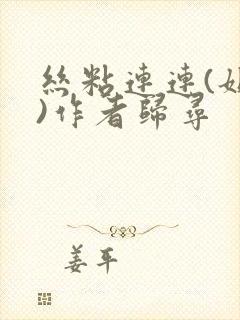 絲粘連連(
)作者歸尋
姜平